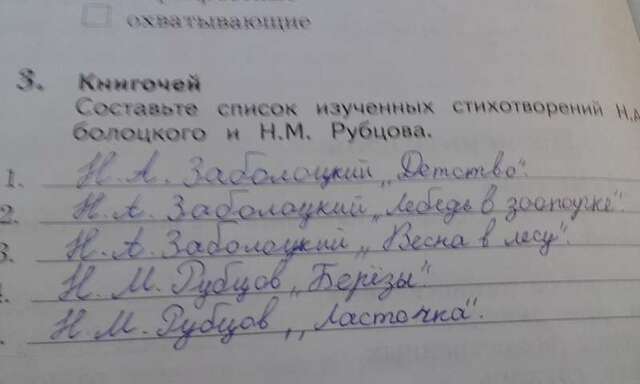 охватывающие
3. Книгочей
Составьте список изученных стихотворений Н.А
болоцкого и Н.М. Рубцова.
1. Н. А. Заболоцкий „Детство".
2. Н. А. Заболоцкий „Лебедь в зоопарке".
3. Н. А. Заболоцкий „Весна в лесу".
Н. М. Рубцов „Берёзы".
Н. М. Рубцов „Ласточка".